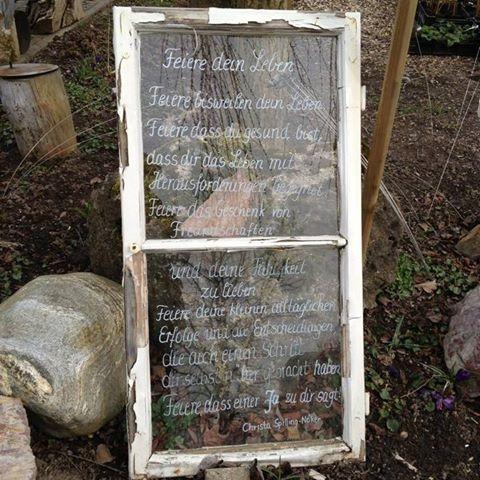 Feiere dein Leben
Feiere bisweilen dein Leben.
Feiere, dass du gesund bist,
dass dir das Leben mit
Herausforderungen begegnet
Feiere das Geschenk von
Freundschaften
und deine Fähigkeit
zu lieben
Feiere deine kleinen alltäglichen
Erfolge und die Entscheidungen
die auch einen Schritt
dir selbst näher gebracht haben
Feiere dass einer Ja zu dir sagt!
Christa Spilling-Nöker